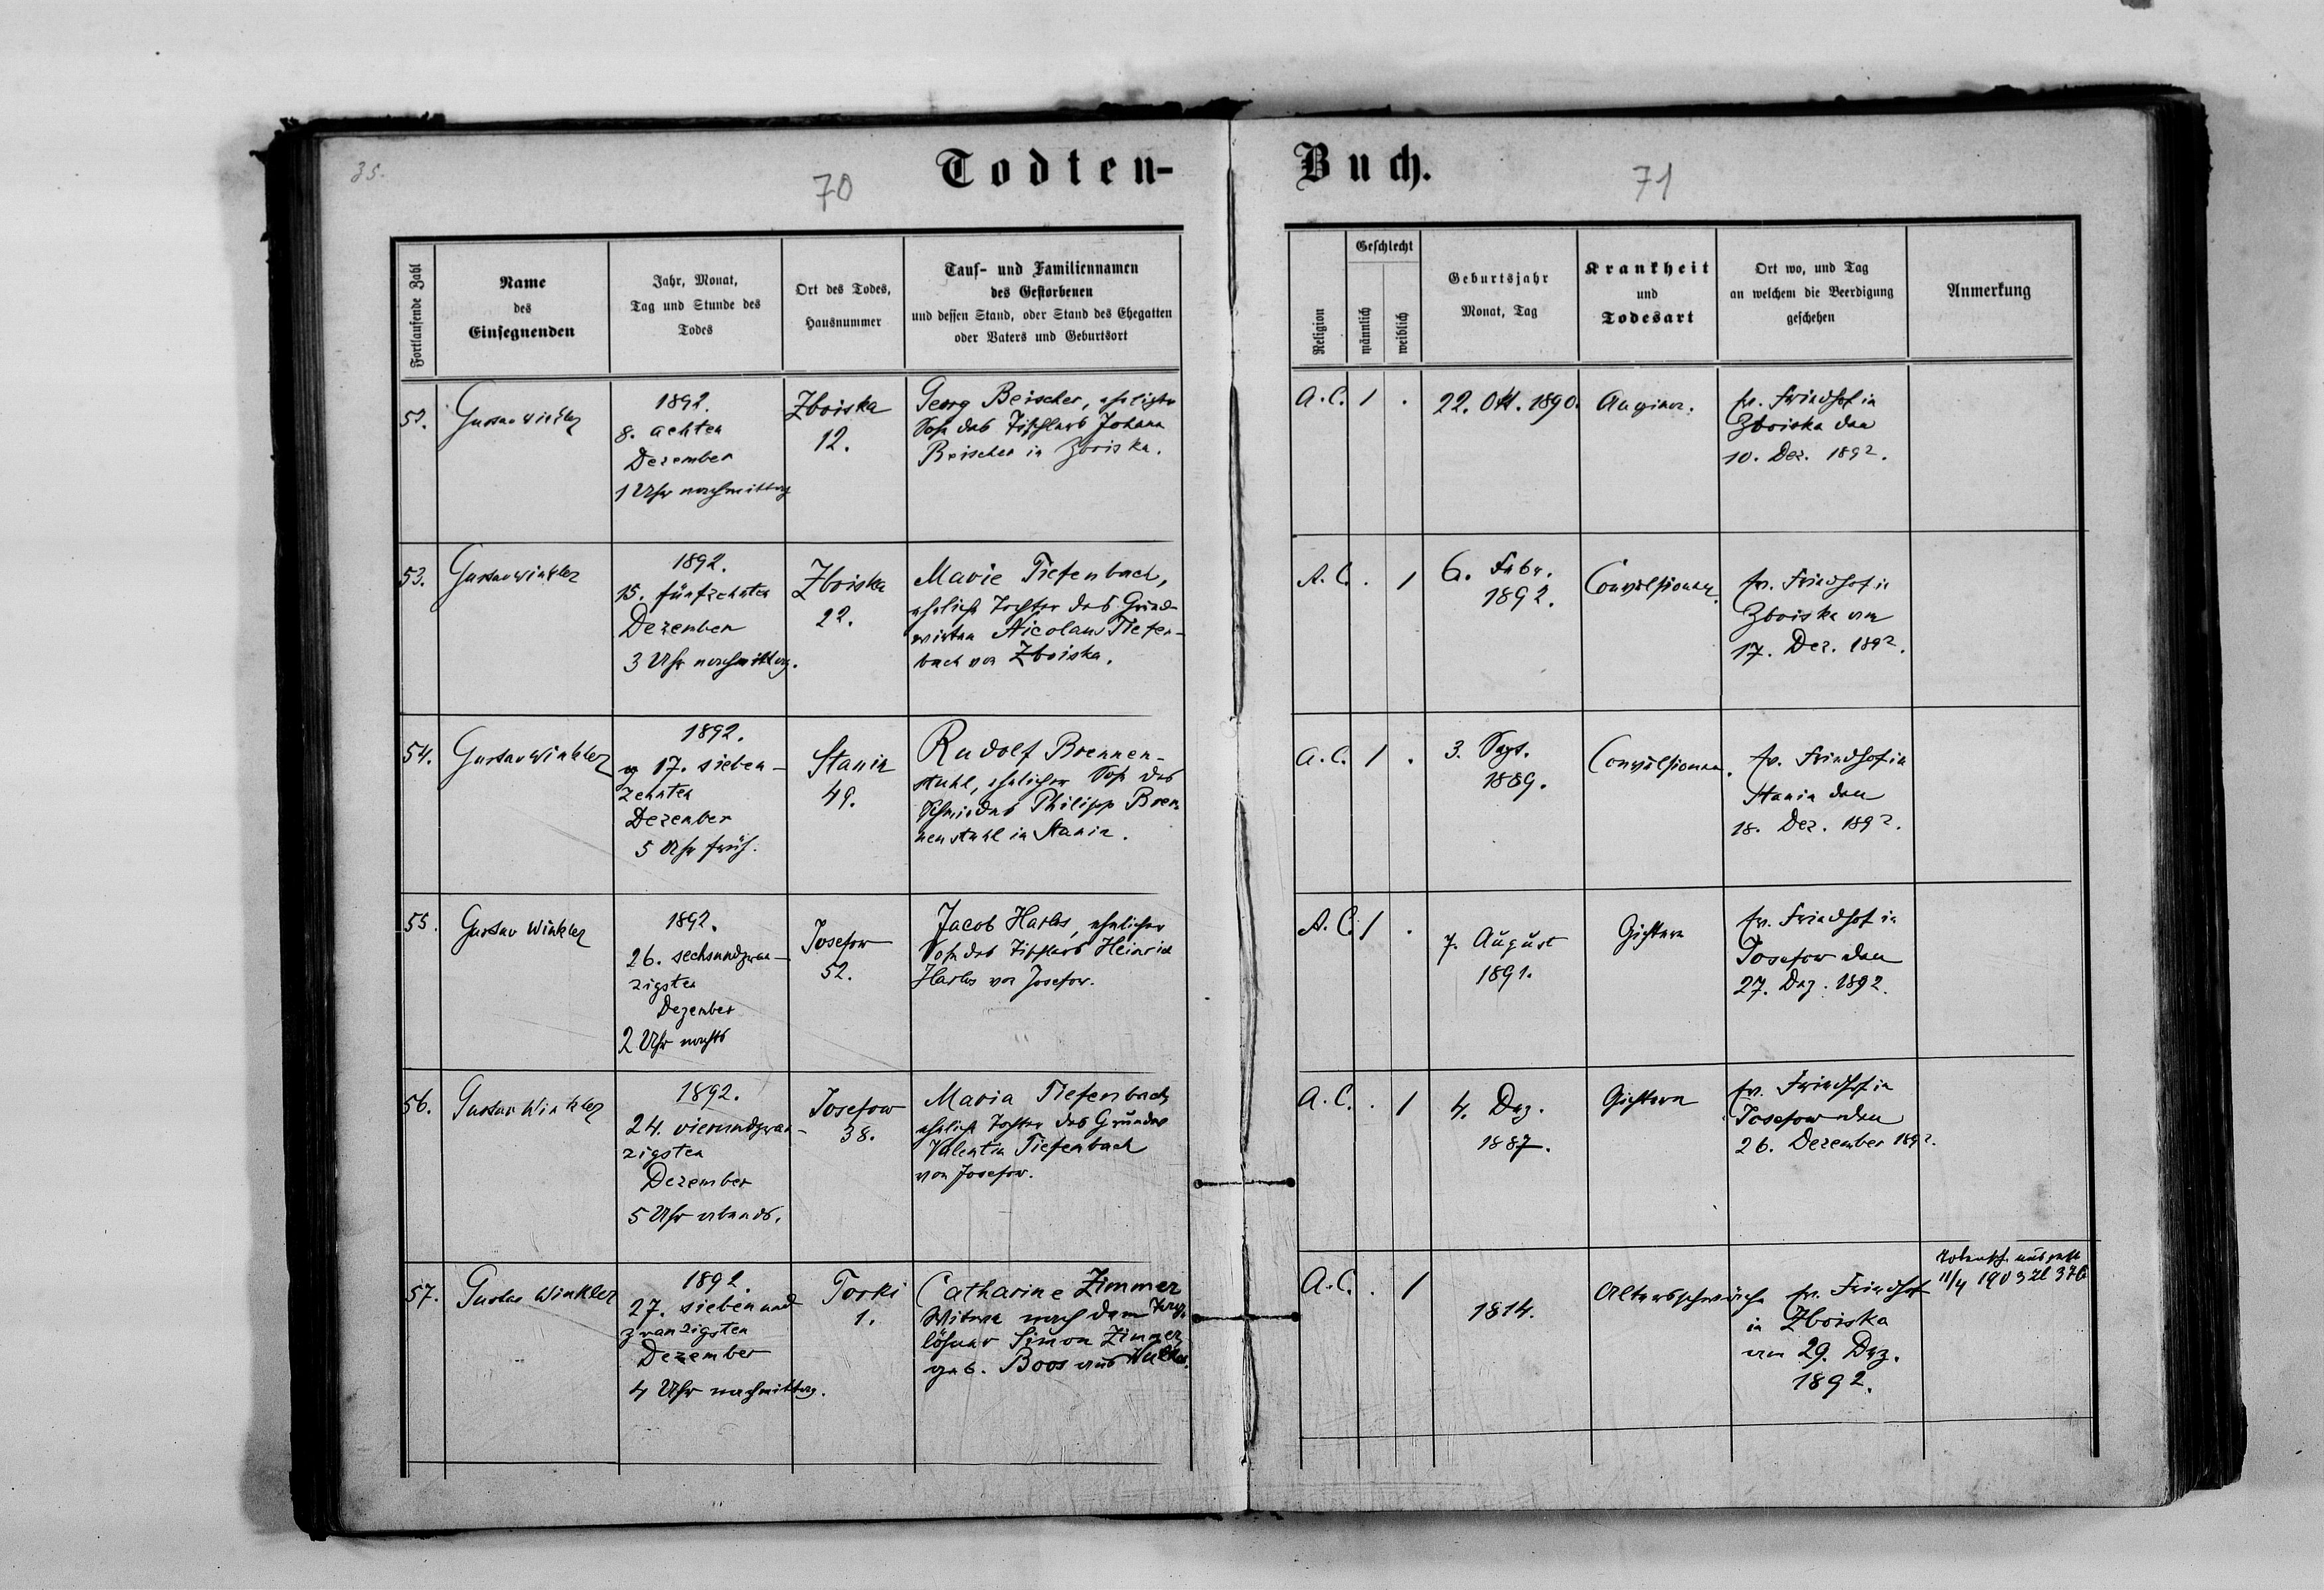 35.
70
Todten-
Fortlaufende Zahl
Name
des
Einsegnenden
Jahr, Monat,
Tag und Stunde des
Todes
Ort des Todes,
Hausnummer
Tauf- und Familiennamen
des Gestorbenen
und dessen Stand, oder Stand des Ehegatten
oder Vaters und Geburtsort
52.
Gustav Winkler
1892.
8. achten
Dezember
1 Uhr nachmittag
Zboiska
12.
Georg Beischer, ehelicher
Sohn des Tischlers Johann
Beischer in Zboiska.
53.
Gustav Winkler
1892.
15. fünfzehnten
Dezember
3 Uhr nachmittag.
Zboiska
22.
Marie Tiefenbach,
eheliche Tochter des Grund-
wirten Nicolaus Tiefen-
bach von Zboiska.
54.
Gustav Winkler
1892.
17. sieben-
zehnten
Dezember
5 Uhr früh.
Stanin
49.
Rudolf Brennen-
stuhl, ehelicher Sohn des
Schmiedes Philipp Bren
nenstuhl in Stanin.
55.
Gustav Winkler
1892.
26. sechsundzwan-
zigsten
Dezember
2 Uhr nachts
Josefow
52.
Jacob Harlos, ehelicher
Sohn des Tischlers Heinrich
Harlos von Josefow.
56.
Gustav Winkler
1892.
24. vierundzwan-
zigsten
Dezember
5 Uhr abends.
Josefow
38.
Maria Tiefenbach
eheliche Tochter des
Valentin Tiefenbach
von Josefow.
57.
Gustav Winkler
1892.
27. siebenund
zwanzigsten
Dezember
4 Uhr nachmittag.
Torki
1.
Catharine Zimmer
Witwe nach dem
Simon Zimmer
geb. Boos aus
Buch.
71
Religion
Geschlecht
männlich
weiblich
Geburtsjahr
Monat, Tag
Krankheit
und
Todesart
Ort wo, und Tag
an welchem die Beerdigung
geschehen
Anmerkung
A.C. 1 .
22. Okt. 1890.
Angina.
ev. Friedhof in
Zboiska den
10. Dez. 1892.
A.C. . 1
6. Febr.
1892.
Convulsionen.
ev. Friedhof in
Zboiska am
17. Dez. 1892.
A.C. 1 .
3. Sept.
1889.
Convulsionen.
ev. Friedhof in
Stanin den
18. Dez. 1892.
A.C. 1 .
7. August
1891.
Gichtern
ev. Friedhof in
Josefow den
27. Dez. 1892.
A.C. . 1
4. Dez.
1887.
Gichtern
ev. Friedhof in
Josefow den
26. Dezember 1892.
A.C. . 1
1814.
Altersschwäche
ev. Friedhof
in Zboiska
am 29. Dez.
1892.
11/4 1903 Zl 376